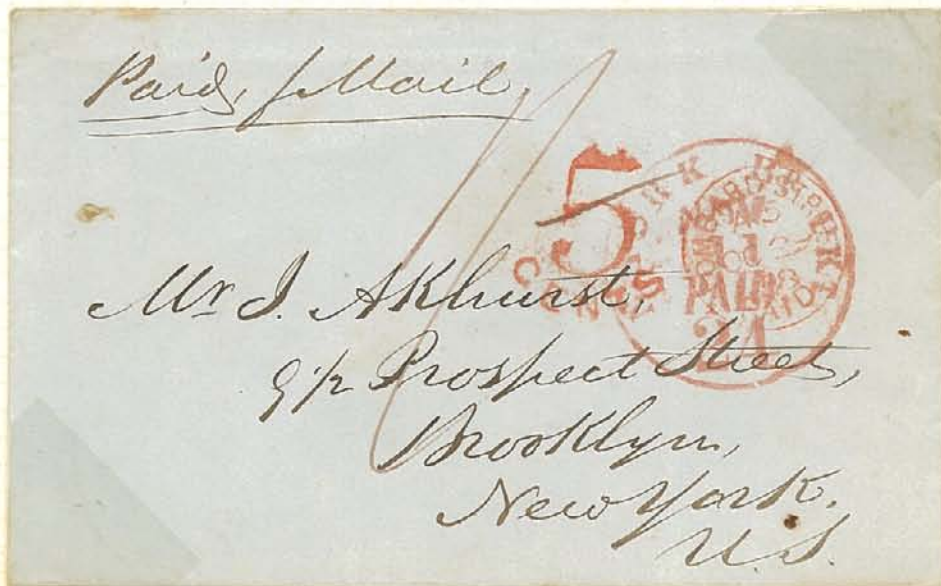 Paid, / Mail,
5
CENTS
PAID
PAID
24
Mr. J. Akhurst,
9½ Prospect Street,
Brooklyn,
New York.
U.S.